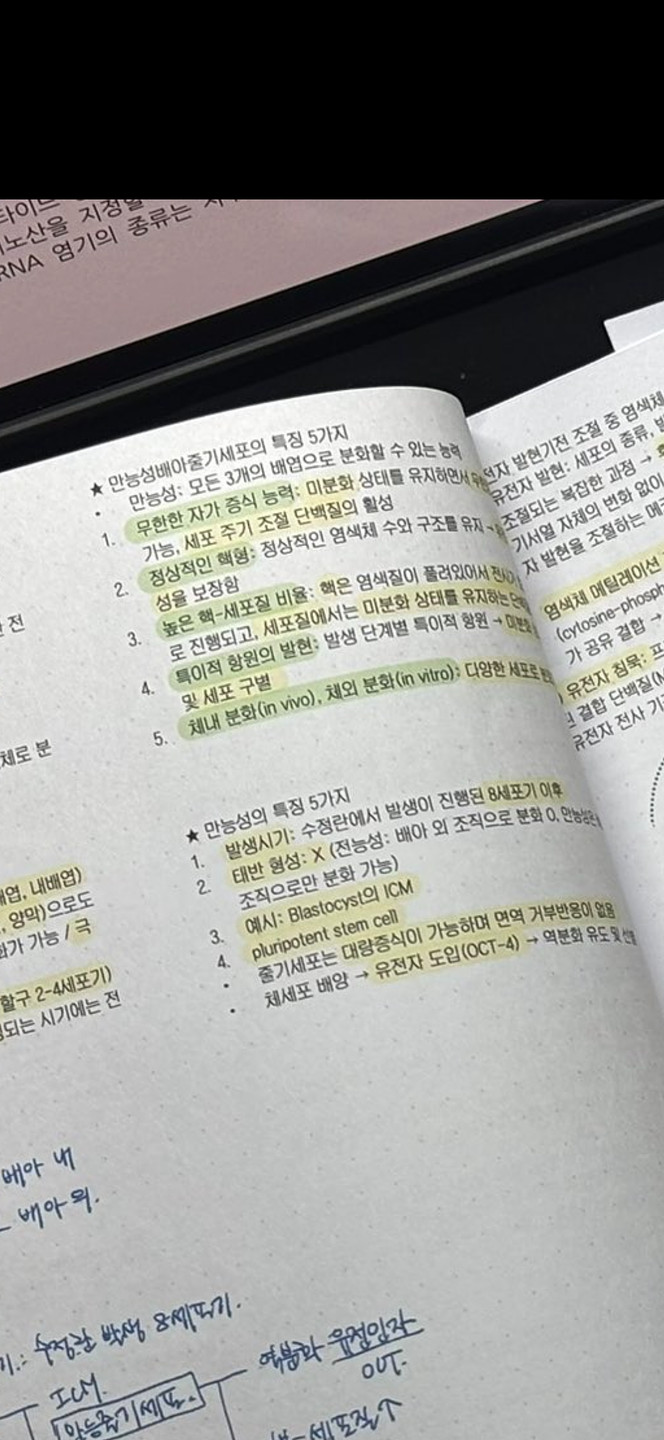 노산을 지정할
RNA 염기의 종류는
★ 만능성배아줄기세포의 특징 5가지
• 만능성: 모든 3개의 배엽으로 분화할 수 있는 능력
1. 무한한 자가 증식 능력: 미분화 상태를 유지하면서
가능, 세포 주기 조절 단백질의 활성
2. 정상적인 핵형: 정상적인 염색체 수와 구조를 유지 →
성을 보장함
3. 높은 핵-세포질 비율: 핵은 염색질이 풀려있어서
로 진행되고, 세포질에서는 미분화 상태를 유지하는
4. 특이적 항원의 발현: 발생 단계별 특이적 항원 →
및 세포 구별
5. 체내 분화(in vivo), 체외 분화(in vitro): 다양한 세포로
★ 만능성의 특징 5가지
1. 발생시기: 수정란에서 발생이 진행된 8세포기 이후
2. 태반 형성: X (전능성: 배아 외 조직으로 분화 O,
조직으로만 분화 가능)
3. 예시: Blastocyst의 ICM
4. pluripotent stem cell
• 줄기세포는 대량증식이 가능하며 면역 거부반응이 없음
• 체세포 배양 → 유전자 도입(OCT-4) → 역분화 유도 및
전
체로 분
배엽, 내배엽)
, 양막)으로도
화가 가능 / 극
할구 2-4세포기)
되는 시기에는 전
배아 내
배아 외.
수정란 발생 8세포기.
ICM
만능줄기세포
역분화 유전인자
OCT.
세포질↑
전자 발현기전 조절 중 염색체
유전자 발현: 세포의 종류,
조절되는 복잡한 과정 →
기서열 자체의 변화 없이
자 발현을 조절하는
염색체 메틸레이션
(cytosine-phosph
가 공유 결합 →
유전자 침묵:
결합 단백질(M
유전자 전사